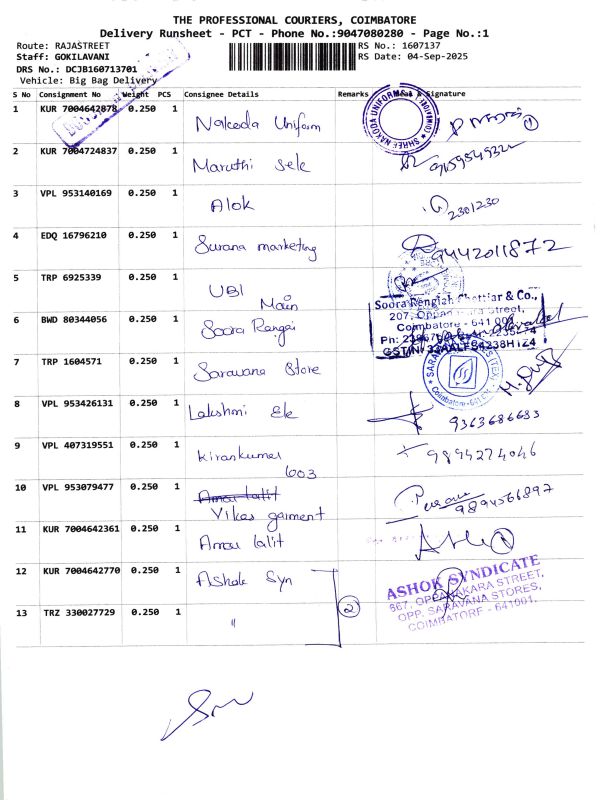 THE PROFESSIONAL COURIERS, COIMBATORE
Delivery Runsheet - PCT - Phone No.:9047080280 - Page No.:1
Route: RAJASTREET RS No.: 1607137
Staff: GOKILAVANI RS Date: 04-Sep-2025
DRS No.: DCJB160713701
Vehicle: Big Bag Delivery
S No Consignment No Weight PCS Consignee Details Remarks & Signature
1 KUR 7004642878 0.250 1 Nakoda Uniform
SHREE NAKODA UNIFORM
2 KUR 7004724837 0.250 1 Maruthi Sele
3 VPL 953140169 0.250 1 Alok 2301230
4 EDQ 16796210 0.250 1 Surana marketing 9442011872
5 TRP 6925339 0.250 1 UBI Main
6 BWD 80344056 0.250 1 Soora Rengai
Soora Rengiah Chettiar & Co.,
Street,
Coimbatore - 641 001
7 TRP 1604571 0.250 1 Saravana Store
8 VPL 953426131 0.250 1 Lakshmi Ele 9363686633
9 VPL 407319551 0.250 1 Kirankumar 603 9894274046
10 VPL 953079477 0.250 1 Amou lalit
Vikas garment 9894566897
11 KUR 7004642361 0.250 1 Amou lalit
12 KUR 7004642770 0.250 1 Ashok Syn
ASHOK SYNDICATE
667, OPPANAKARA STREET,
OPP. SARAVANA STORES,
COIMBATORE - 641001.
13 TRZ 330027729 0.250 1 " 2